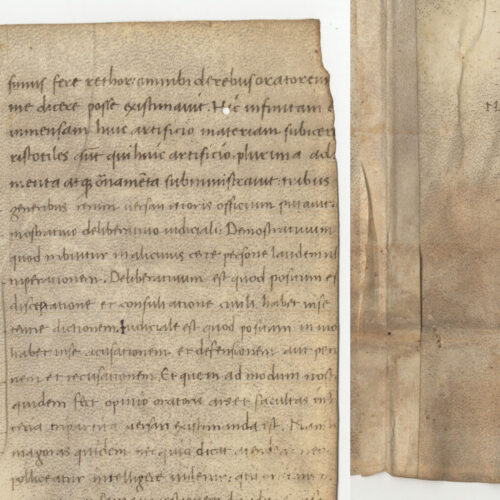 simus fere rethor. omnibꝰ de rebus oratorem
me dicere posse existimauit. Hic infinitam e
inmensam huic artificio materiam subicer
ristotiles aut qui huic artificio plurima ad
menta atq; ornamenta subministrauit. tribus
generibus rerum uersari oratoris officium putauit.
monstratiuo deliberatiuo iudiciali. Demonstratiuum
quod tribuitur in alicuius certe persone laudem ut
uiperationem. Deliberatiuum est quod positum e
disceptatione et consultatione ciuili habet in se
tentie dictionem. Iudiciale est quod positum in iud
habet in se accusationem et defensionem aut peti
nem et recusationem. Et quem ad modum nost
quidem fert opinio oratoris ars et facultas in h
teria tripartita uersari existimanda est. Nam h
magoras quidem nec quid dicat attendere nec
polliceatur intelligere uidetur. qui or